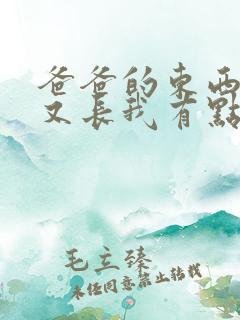 爸爸的東西
又長我有點
毛立臻
未任同意禁止转载